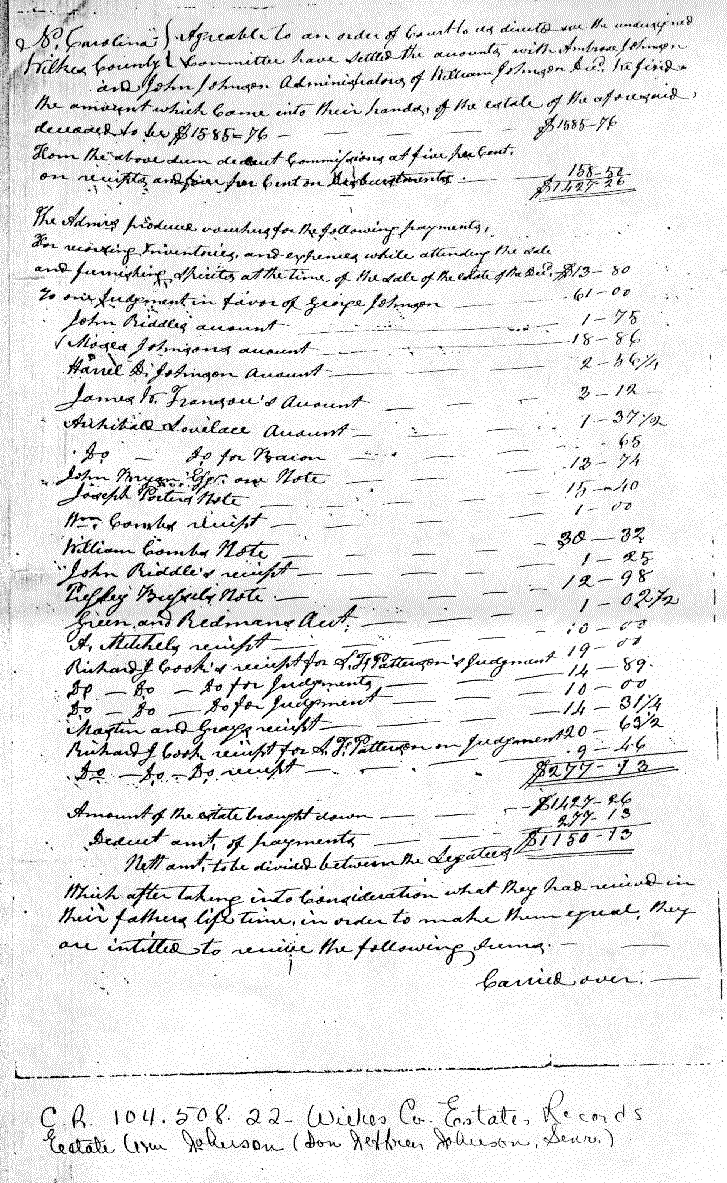 No. Carolina } Agreable to an order of Court to us directed we the undersigned
Wilkes County } Committee have settled the accounts with Ambrose Johnson
and John Johnson Administrators of William Johnson Decd. & find
the amount which Came into their hands, of the estate of the aforesaid,
deceased to be $1585-76 — — — — $1585-76
From the above sum deduct Commissions at five per Cent.
on receipts, and five per Cent on Disbursments — 158-50
$1427-26
The Admrs produce vouchers for the following payments,
For recording Inventories, and expences while attending the sale
and furnishing Spirits at the time of the sale of the estate of the Decd. $13-80
To one Judgment in favor of George Johnson — 61-00
John Riddles account — 1-75
Moses Johnsons account — 18-86
D. Johnson Account — 2-56 1/4
James Account — 3-12
Archibald Lovelace Account — 1-37 1/2
Do — Do for Bacon — 65
John Bryan Esqr. one Note — 13-74
Joseph Porters Note — 15-40
Wm. Combs receipt — 1-00
William Combs Note — 30-32
John Riddle's receipt — 1-25
Note — 12-98
Green and Redmans Act. — 1-02 1/2
A. Mitchels receipt — 10-00
Richard J Cook's receipt for S. F. Patterson's Judgment 19-00
Do — Do — Do for Judgments — 14-89
Do — Do — Do for Judgment — 10-00
Martin and Grays receipt — 14-31 1/4
Richard J Cook receipt for S. F. Patterson on Judgement 20-63 1/2
Do — Do — Do receipt — 9-46
$277-13
Amount of the estate brought down — $1427-26
Deduct amt. of payments — 277-13
Nett amt. to be divided between the Legatees $1150-13
Which after taking into Consideration what they had received in
their fathers life time, in order to make them equal, they
are intitled to receive the following sums. —
Carried over. —
C.R. 104.508.22- Wilkes Co. Estates Records
Estate Wm Johnson (Son Jeffrey Johnson, Senr.)